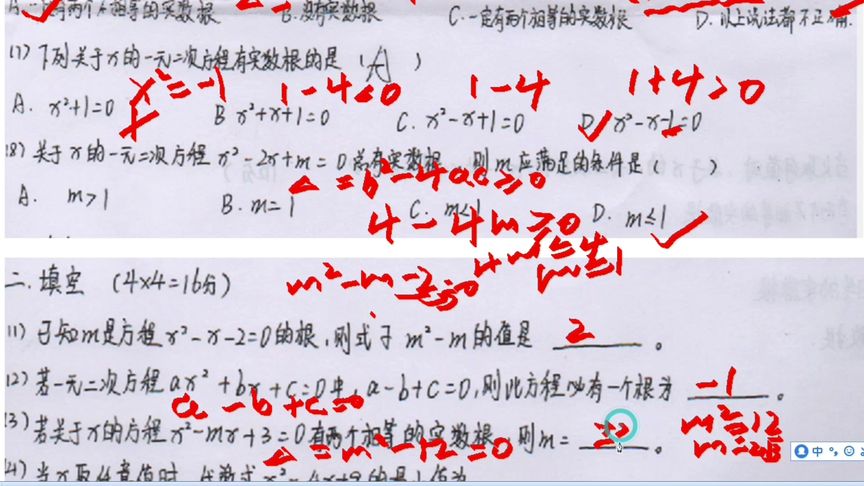 A. 一定有两个不相等的实数根 B. 没有实数根 C. 一定有两个相等的实数根 D. 以上说法都不正确.
(7) 下列关于x的一元二次方程有实数根的是 (A)
x²=-1 1-4<0 1-4 1+4>0
A. x²+1=0 B x²+x+1=0 C. x²-x+1=0 D. x²-x-1=0
(8) 关于x的一元二次方程 x²-2x+m=0总有实数根,则m应满足的条件是 ( )
△=b²-4ac≥0
A. m>1 B. m=1 C. m<1 D. m≤1
4-4m≥0
m≤1
m²-m-2=0
二. 填空 (4×4=16分)
(11) 已知m是方程x²-x-2=0的根,则式子m²-m的值是 2 。
(12) 若一元二次方程ax²+bx+c=0中,a-b+c=0,则此方程必有一个根为 -1 。
a-b+c=0
m²=12
(13) 若关于x的方程x²-mx+3=0有两个相等的实数根,则m= 。
△=m-12=0
(14) 当x取任意值时,代数式x²-4x+9的最小值为
中